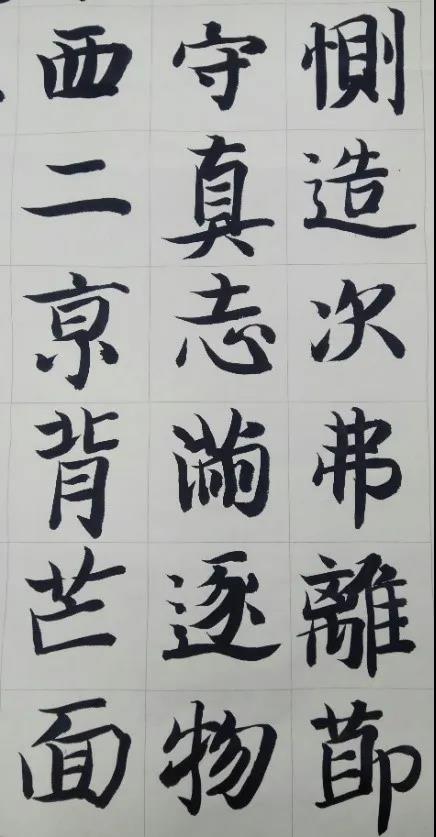 惻造次弗離莭
守真志滿逐物
西二亰背芒面